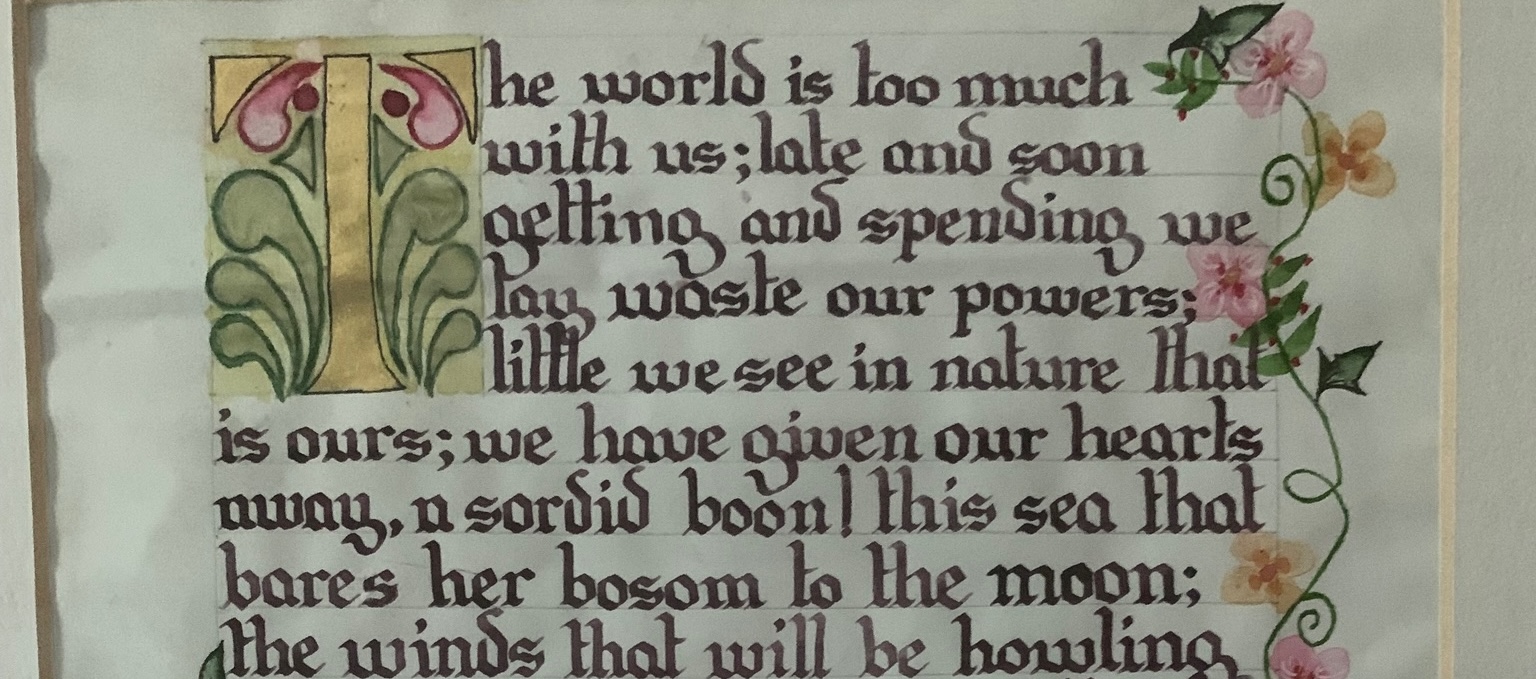 The world is too much
with us; late and soon
getting and spending we
lay waste our powers;
little we see in nature that
is ours; we have given our hearts
away, a sordid boon! this sea that
bares her bosom to the moon;
the winds that will be howling